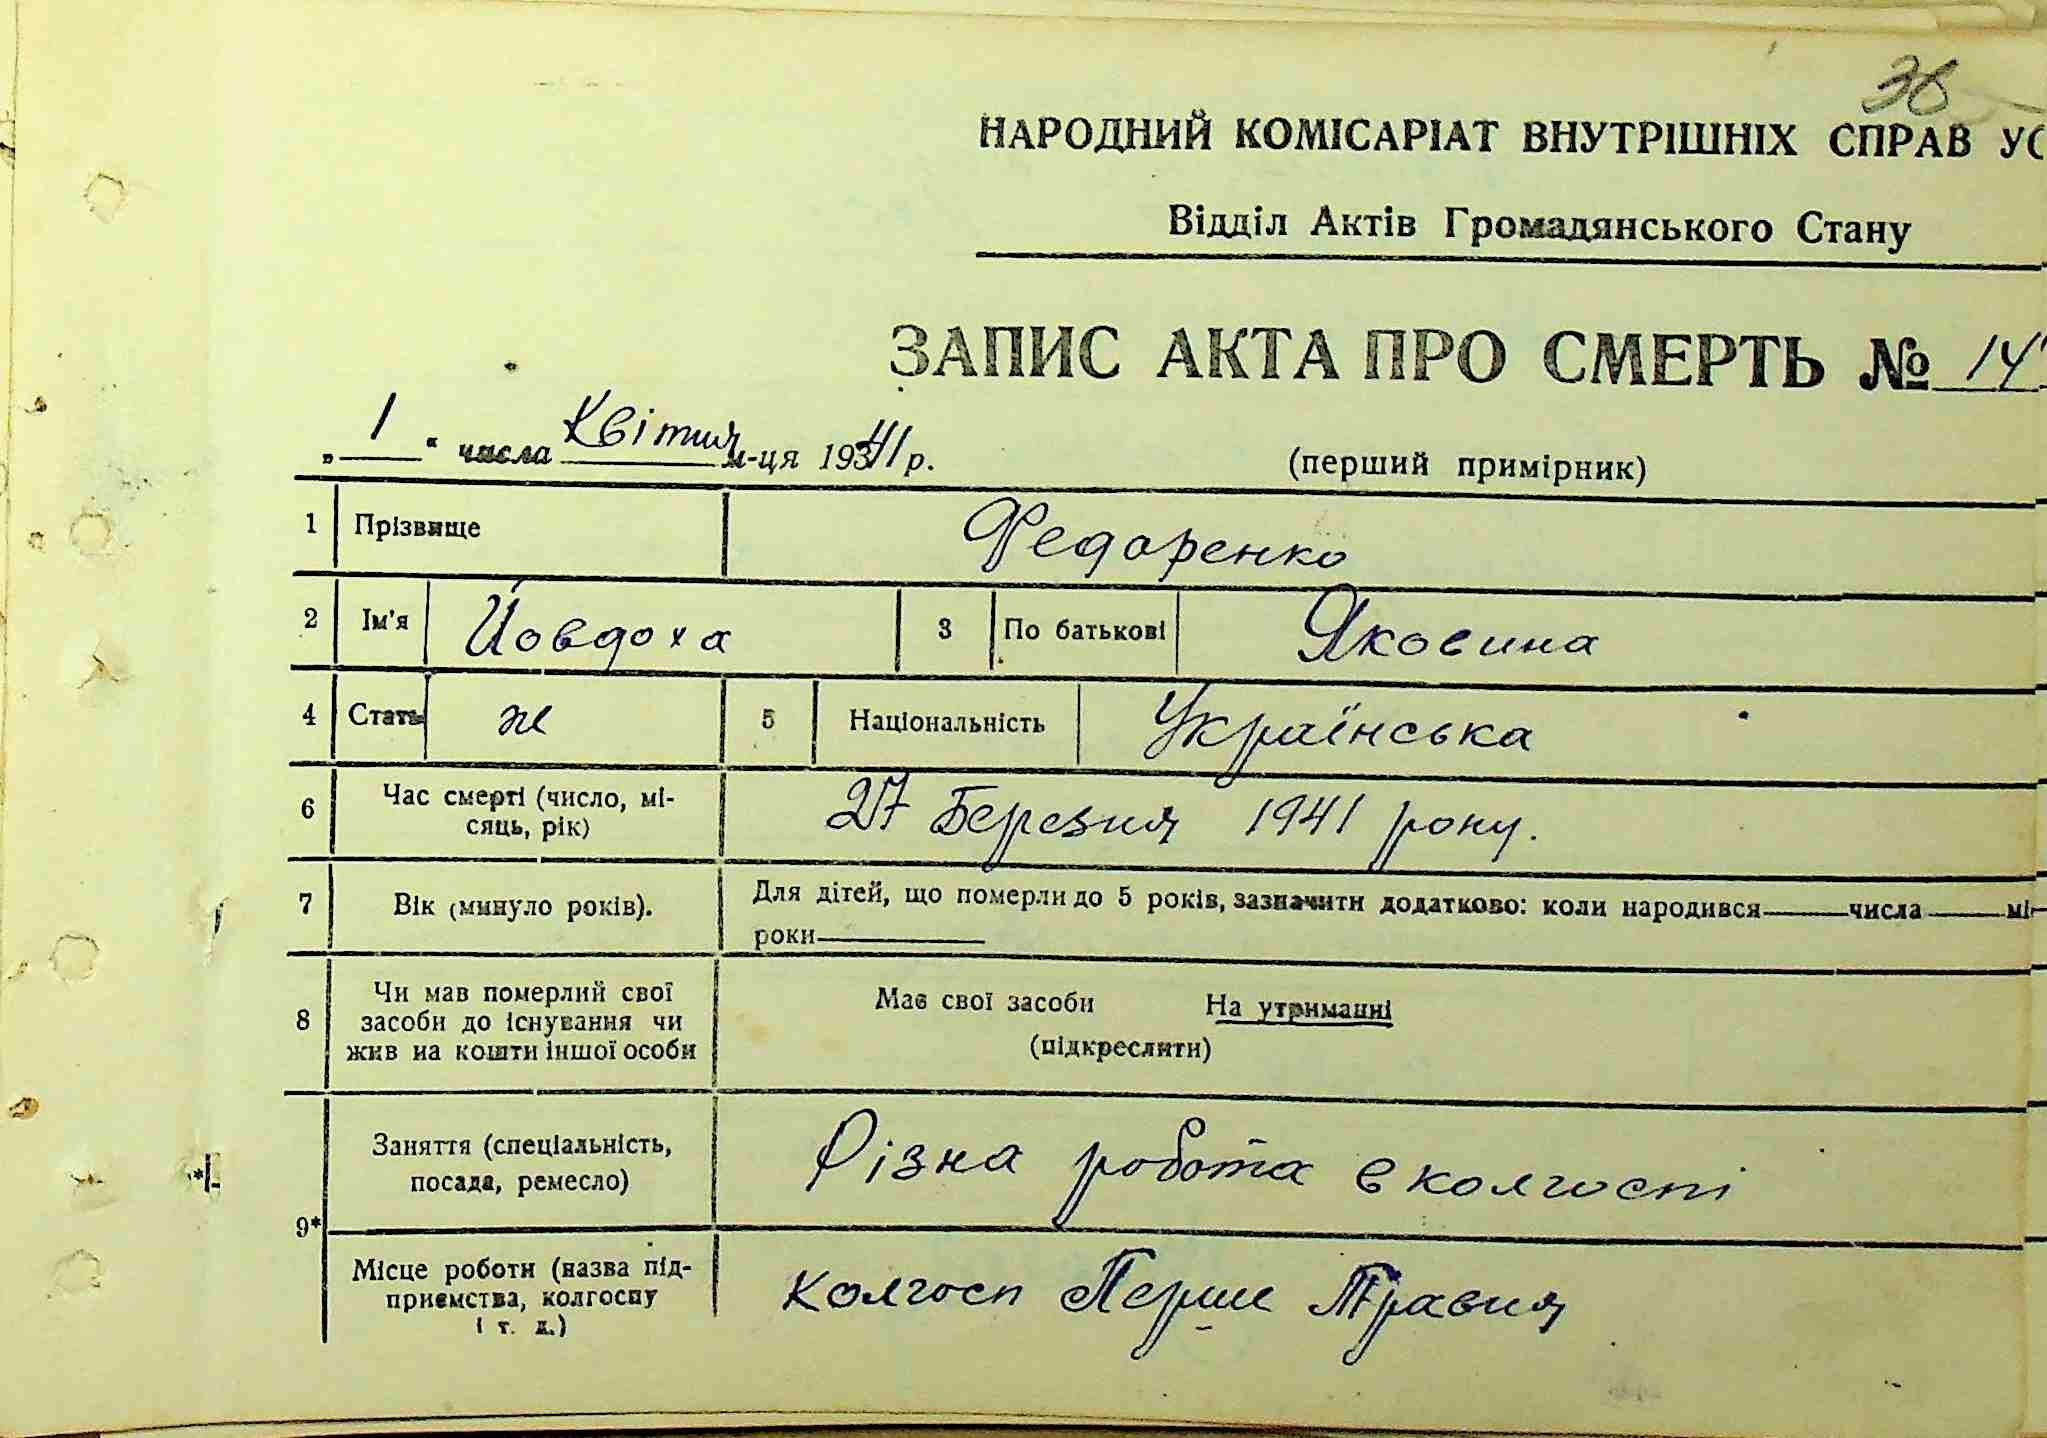 38
НАРОДНИЙ КОМІСАРІАТ ВНУТРІШНІХ СПРАВ УС
Відділ Актів Громадянського Стану
ЗАПИС АКТА ПРО СМЕРТЬ № 14
„ 1 “ числа Квітня м-ця 1941 р. (перший примірник)
1 Прізвище Федоренко
2 Ім'я Йовдоха 3 По батькові Яковина
4 Стать ж 5 Національність Українська
6 Час смерті (число, мі-
сяць, рік) 27 Березня 1941 року.
7 Вік (минуло років). Для дітей, що померли до 5 років, зазначити додатково: коли народився числа мі-
роки
8 Чи мав померлий свої
засоби до існування чи
жив на кошти іншої особи
Має свої засоби На утриманні
(підкреслити)
9* Заняття (спеціальність,
посада, ремесло) Різна робота в колгоспі
Місце роботи (назва під-
приємства, колгоспу
і т. д.) колгосп Перше Травня